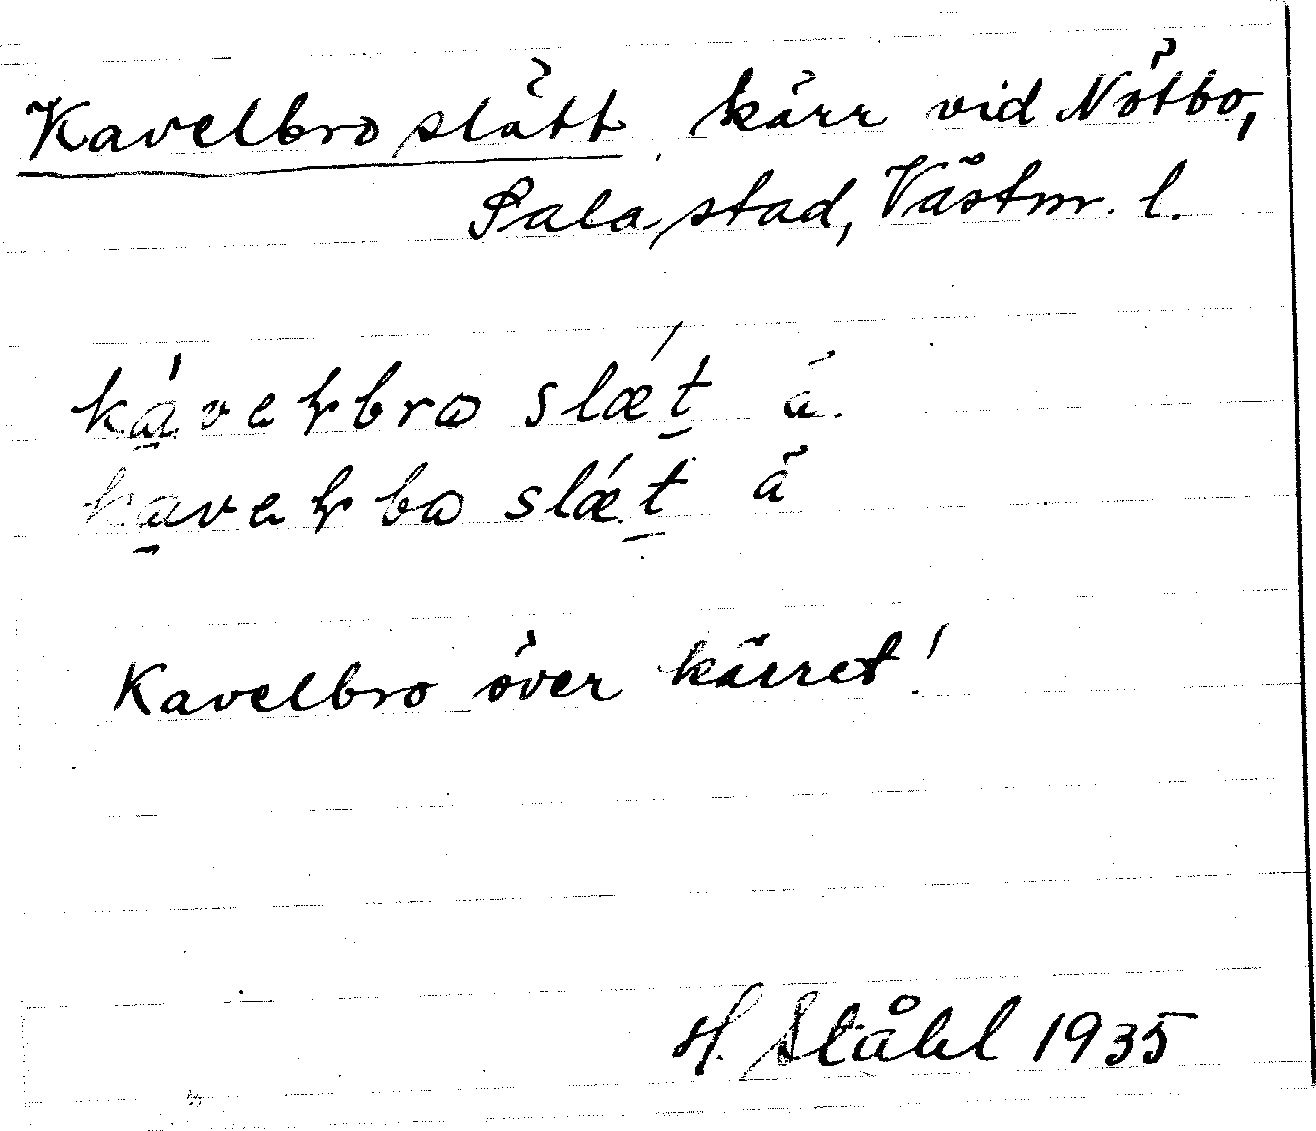 Kavelbroslätt, kärr vid Nötbo,
Sala stad, Västm. l.
kávaɭbro slǽt ä.
kavaɭbo slǽt ä
Kavelbro över kärret!
H. Ståhl 1935